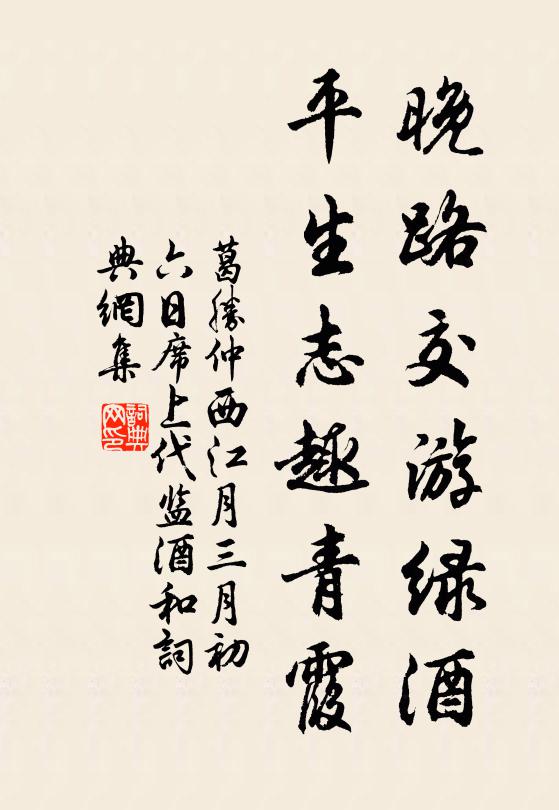 晚路交游绿酒
平生志趣青霞
葛勝仲西江月三月初
六日席上代监酒和詞
典網集
詞典网印